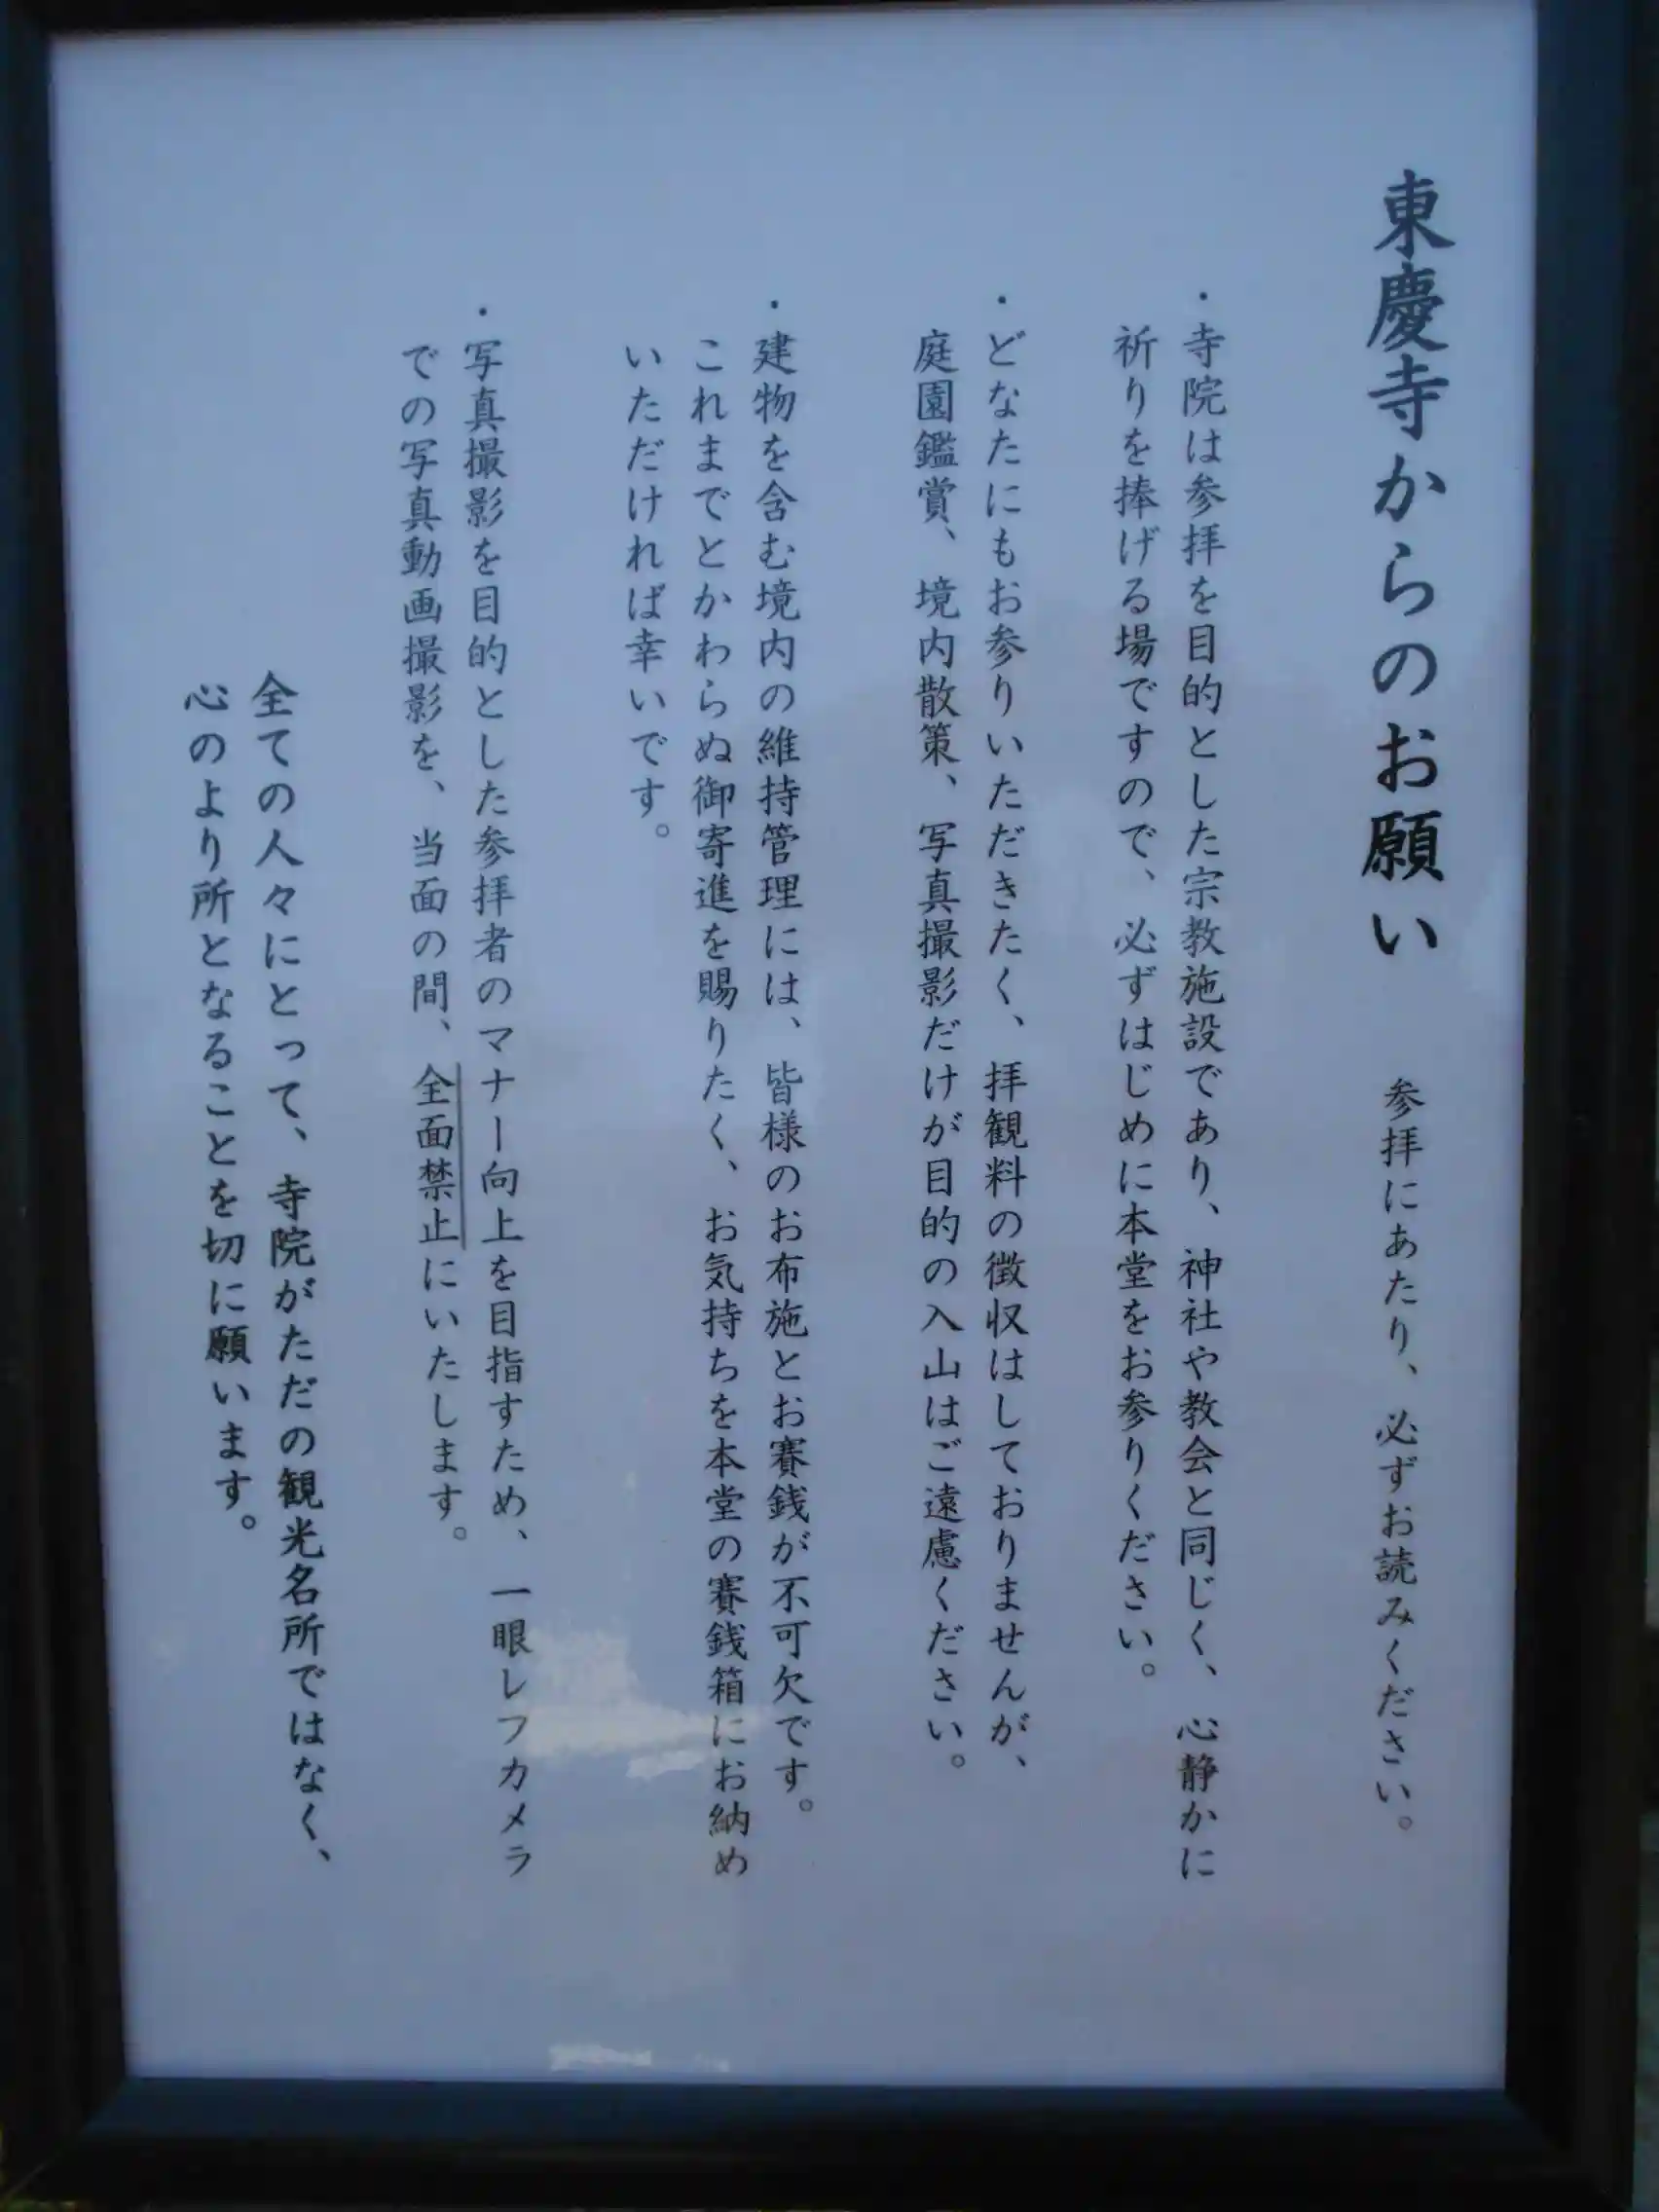 東慶寺からのお願い　参拝にあたり、必ずお読みください。
・寺院は参拝を目的とした宗教施設であり、神社や教会と同じく、心静かに
祈りを捧げる場ですので、必ずはじめに本堂をお参りください。
・どなたにもお参りいただきたく、拝観料の徴収はしておりませんが、
庭園鑑賞、境内散策、写真撮影だけが目的の入山はご遠慮ください。
・建物を含む境内の維持管理には、皆様のお布施とお賽銭が不可欠です。
これまでとかわらぬ御寄進を賜りたく、お気持ちを本堂の賽銭箱にお納め
いただければ幸いです。
・写真撮影を目的とした参拝者のマナー向上を目指すため、一眼レフカメラ
での写真動画撮影を、当面の間、全面禁止にいたします。
全ての人々にとって、寺院がただの観光名所ではなく、
心のより所となることを切に願います。